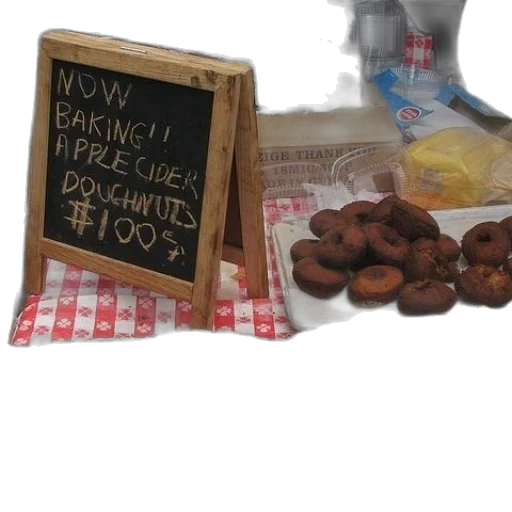 NOW
BAKING!!
APPLE CIDER
DOUGHNUTS
$100
EIGE THANK YOU